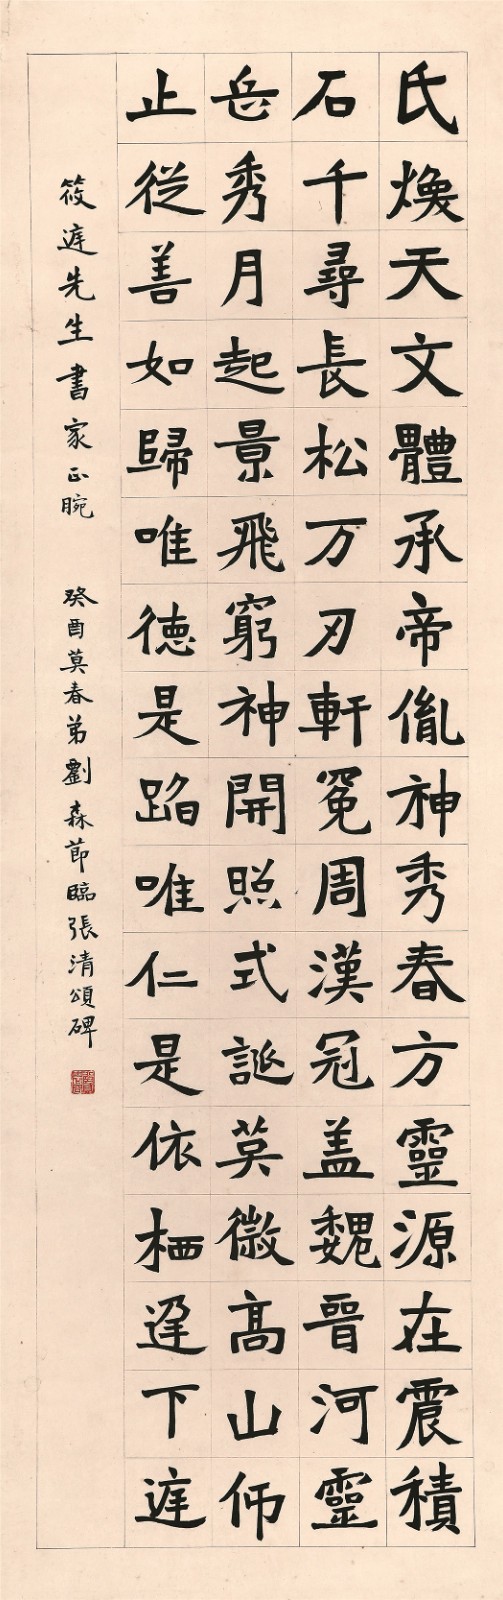 氏煥天文體承帝胤神秀春方靈源在震積
石千尋長松万刃軒冕周漢冠盖魏晉河靈
岳秀月起景飛窮神開照式誕莫徽高山仰
止從善如歸唯德是蹈唯仁是依栖遲下遲
筱遲先生書家正腕
癸酉莫春弟劉森節臨張清頌碑